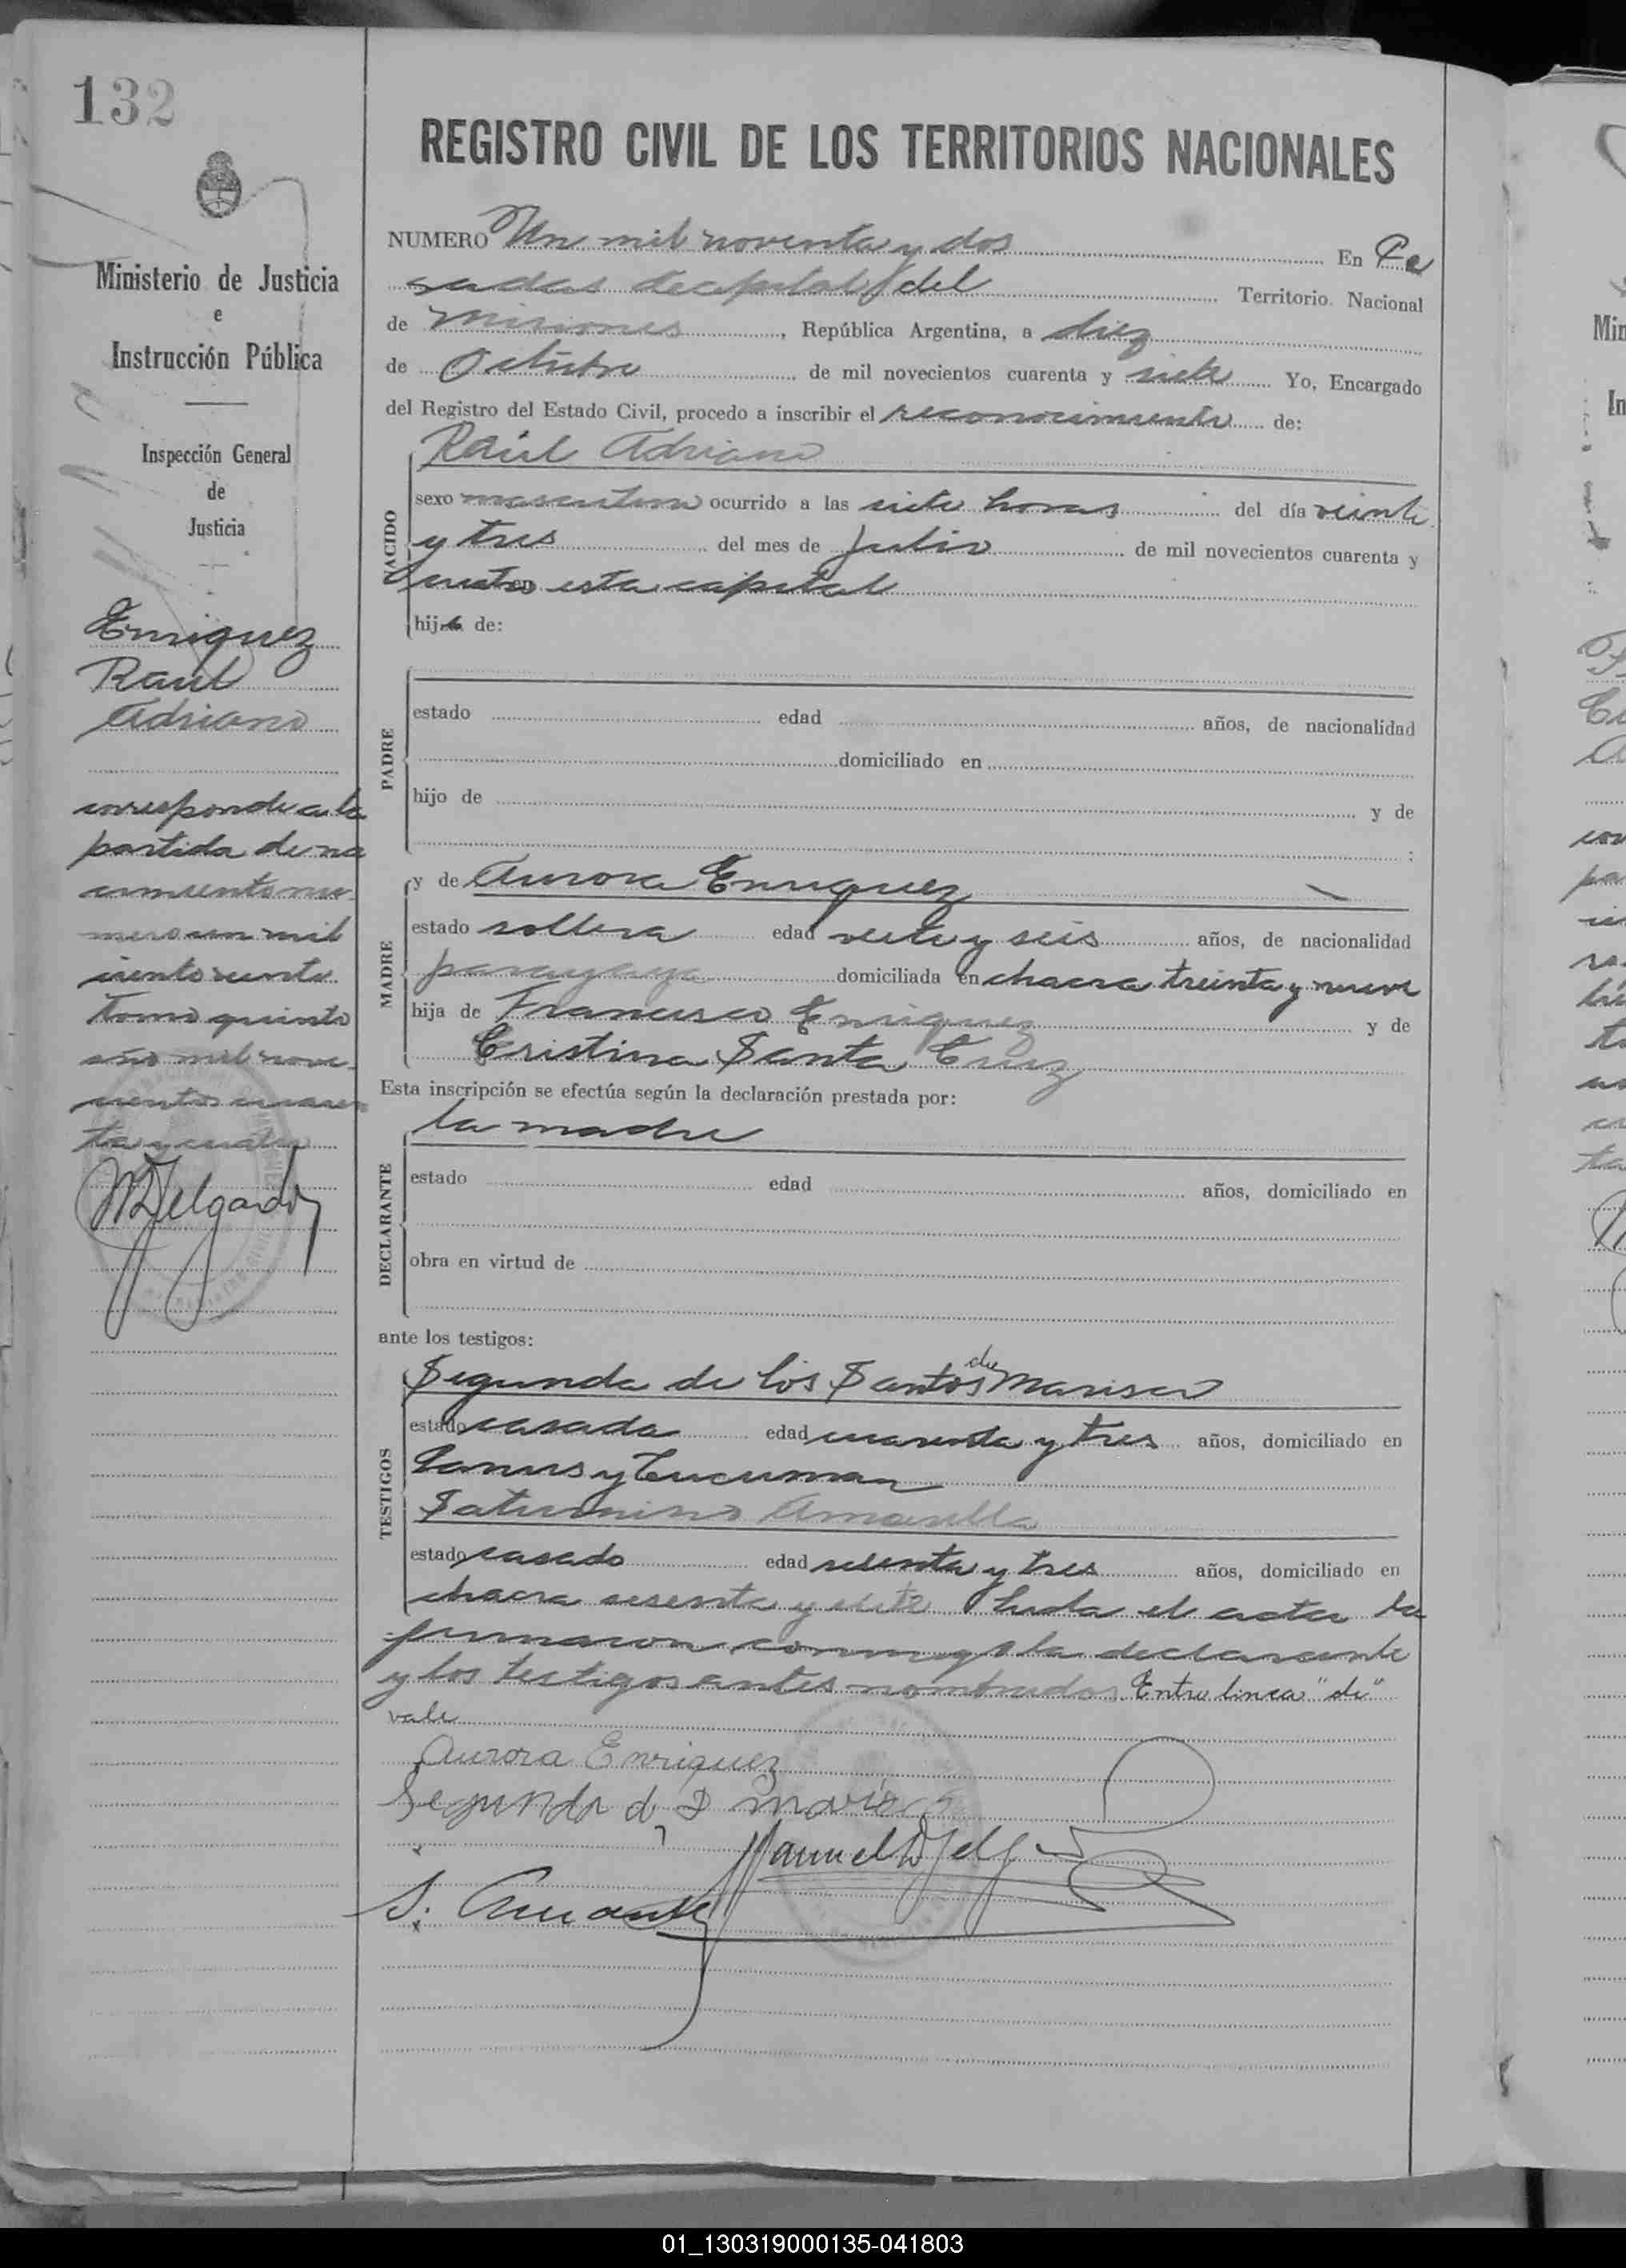 132
Ministerio de Justicia
e
Instrucción Pública
Inspección General
de
Justicia
Enriquez
Raul
Adriano
corresponde a la
partida de na
cimiento nu-
mero un mil
ciento veinte
Tomo quinto
año mil nove-
cientos cuaren
ta y cuatro
MDelgado
REGISTRO CIVIL DE LOS TERRITORIOS NACIONALES
NUMERO Un mil noventa y dos En Po
sadas capital del Territorio Nacional
de Misiones, República Argentina, a diez
de Octubre de mil novecientos cuarenta y siete Yo, Encargado
del Registro del Estado Civil, procedo a inscribir el reconocimiento de:
Raúl Adriano
NACIDO
sexo masculino ocurrido a las siete horas del día veinte
y tres del mes de Julio de mil novecientos cuarenta y
cuatro esta capital
hijo de:
PADRE
estado edad años, de nacionalidad
domiciliado en
hijo de y de
;
MADRE
y de Aurora Enriquez
estado soltera edad veite y seis años, de nacionalidad
paraguaya domiciliada en chacra treinta y nueve
hija de Francisco Enriquez y de
Cristina Santa Cruz
Esta inscripción se efectúa según la declaración prestada por:
la madre
DECLARANTE
estado edad años, domiciliado en
obra en virtud de
ante los testigos:
TESTIGOS
Segunda de los Santos de Marisco
estado casada edad cuarenta y tres años, domiciliado en
Lanus y Tucuman
Saturnino Amarilla
estado casado edad sesenta y tres años, domiciliado en
chacra sesenta y siete Leida el acta la
firmaron conmigo la declarante
y los testigos antes nombrados. Entre linea "de"
vale
Aurora Enriquez
Segunda d
Manuel Delg
S.
01_130319000135-041803